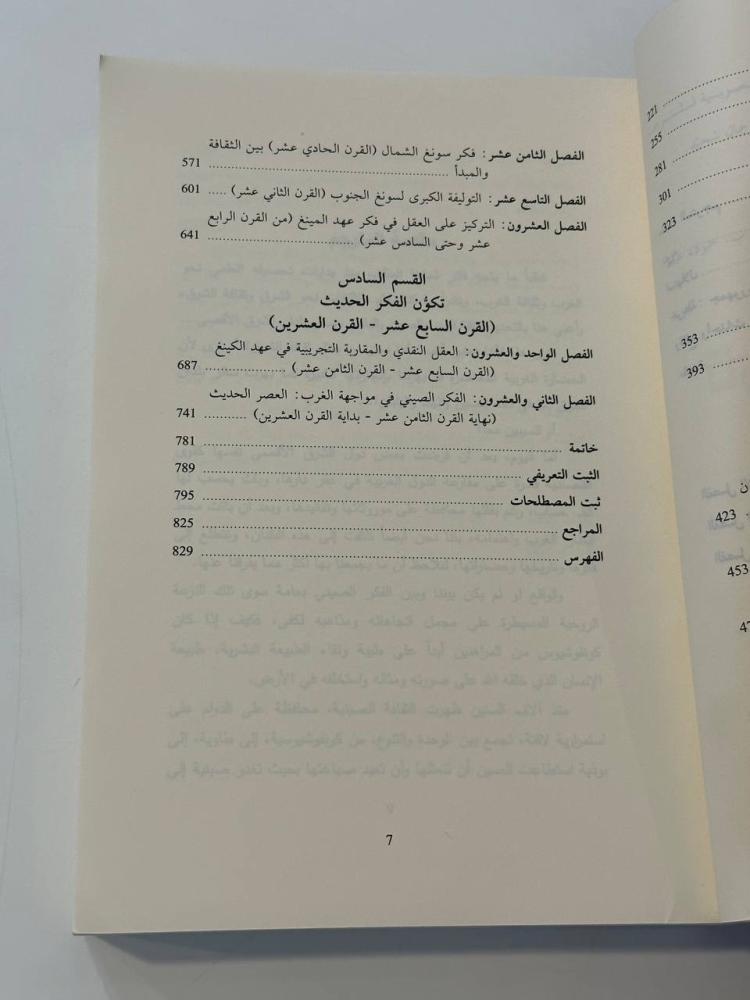 الفصل الثامن عشر: فكر سونغ الشمال (القرن الحادي عشر) بين الثقافة
والمبدأ ........ 571
الفصل التاسع عشر: التوليفة الكبرى لسونغ الجنوب (القرن الثاني عشر) ..... 601
الفصل العشرون: التركيز على العقل في فكر عهد المينغ (من القرن الرابع
عشر وحتى السادس عشر) ........ 641
القسم السادس
تكوّن الفكر الحديث
(القرن السابع عشر - القرن العشرين)
الفصل الواحد والعشرون: العقل النقدي والمقاربة التجريبية في عهد الكينغ
(القرن السابع عشر - القرن الثامن عشر) ........ 687
الفصل الثاني والعشرون: الفكر الصيني في مواجهة الغرب: العصر الحديث
(نهاية القرن الثامن عشر - بداية القرن العشرين) ........ 741
خاتمة ........ 781
الثبت التعريفي ........ 789
ثبت المصطلحات ........ 795
المراجع ........ 825
الفهرس ........ 829
7
221
255
281
301
323
353
393
423
453